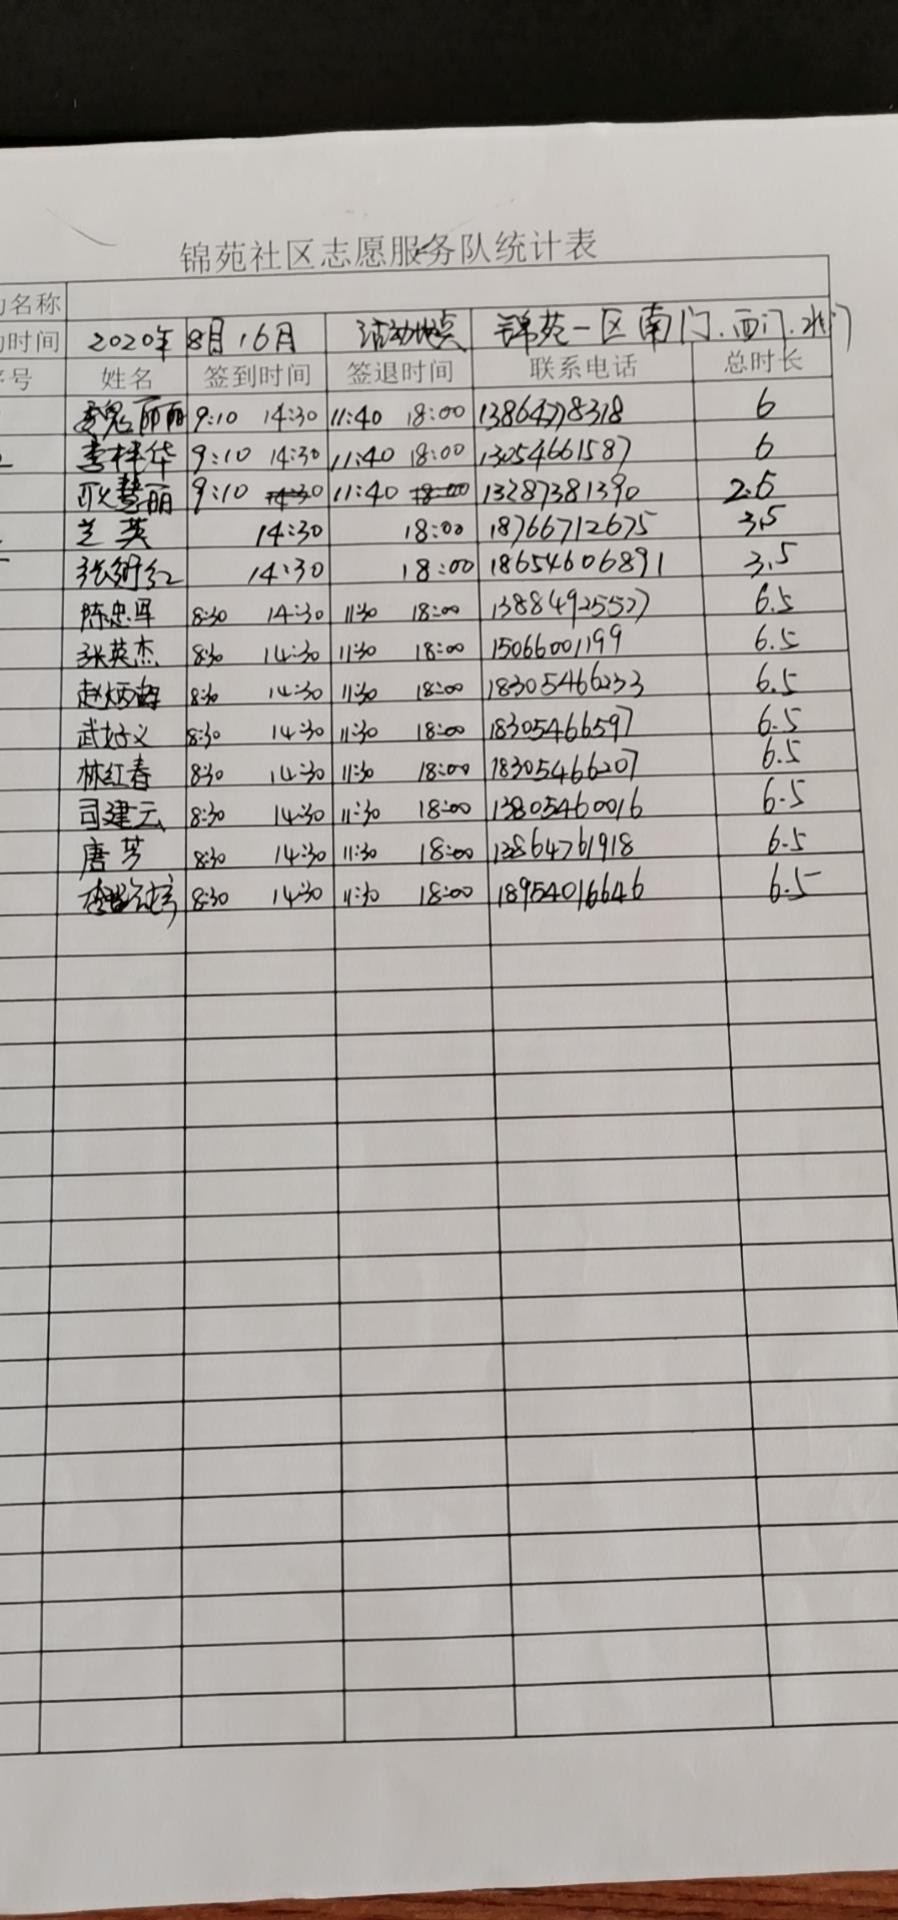 锦苑社区志愿服务队统计表
名称
时间 2020年8月16月 活动地点 锦苑一区南门.西门.北门
序号 姓名 签到时间 签退时间 联系电话 总时长
丽丽 9:10 14:30 11:40 18:00 13864778318 6
李梓华 9:10 14:30 11:40 18:00 13054661587 6
耿慧丽 9:10 14:30 11:40 18:00 13287381390 2.5
兰英 14:30 18:00 18766712675 3.5
张 红 14:30 18:00 18654606891 3.5
陈忠军 8:30 14:30 11:30 18:00 13884925527 6.5
张英杰 8:30 14:30 11:30 18:00 15066001199 6.5
赵炳 8:30 14:30 11:30 18:00 18305466233 6.5
武好义 8:30 14:30 11:30 18:00 18305466597 6.5
林红春 8:30 14:30 11:30 18:00 18305466207 6.5
司建云 8:30 14:30 11:30 18:00 13805460016 6.5
唐芳 8:30 14:30 11:30 18:00 13864761918 6.5
8:30 14:30 11:30 18:00 18954016646 6.5